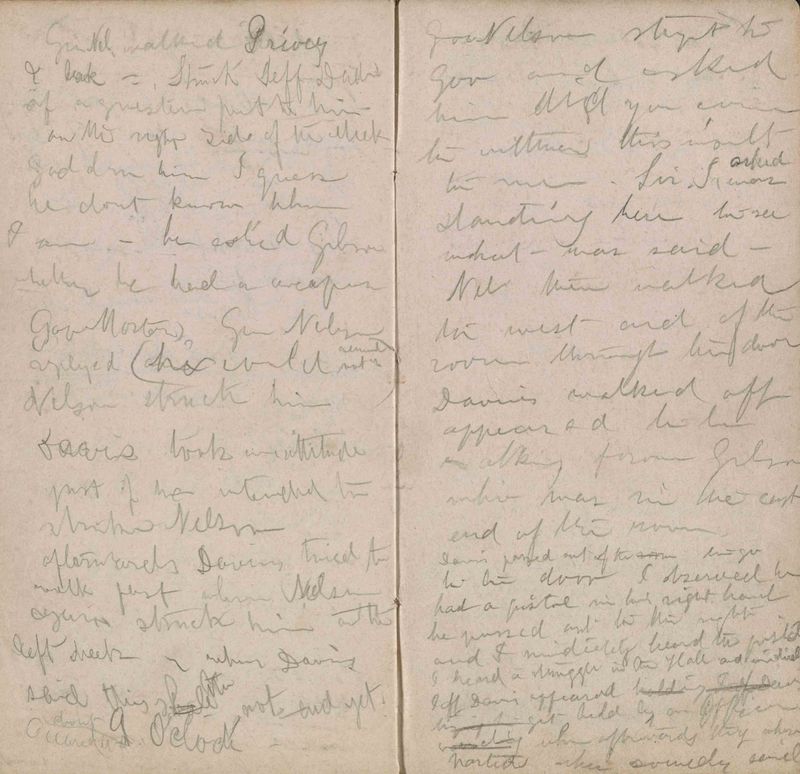 Gen Nel walked Privcy
& back = , Struck Jeff Davis
of a question put to him
on the right side of the cheek
God dam him I guess
he dont know who
I am - he asked Gibson
he had a weapon
Gov Morton, Gen Nelson
replyed
Nelson struck him
Davis took an attitude
just if he intended to
strike Nelson
afterwards Davis tried to
walk past when Nelson
again struck him on the
left cheek & when Davis
said this shall not end yet.
about 9 OClock
Gen Nelson stept to
Gov and asked
him did you come
to witness this insult
to me. Sir, I was asked
standing here to see
what - was said -
Nel then walked
to west end of the
room through the door
Davis walked off
appeared to be
talking Gibson
who was in the east
end of the room
Davis passed out of the room to go
to the door I observed he
had a pistol in his right hand
he passed out to the right
and I heard the pistol
I heard a struggle in the Hall and
Jeff Davis appeared holding
get held by an officer
when afterwards they
when somebody said